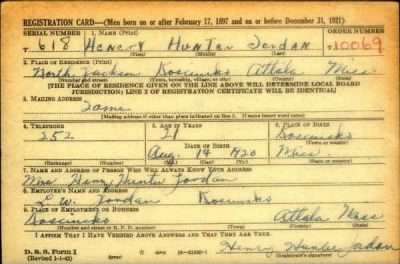 REGISTRATION CARD—(Men born on or after February 17, 1897 and on or before December 31, 1921)
SERIAL NUMBER 1. NAME (Print) ORDER NUMBER
T 618 Henry Hunter Jordan 10069
(First) (Middle) (Last)
2. PLACE OF RESIDENCE (Print)
North Jackson Kosciusko Attala Miss.
(Number and street) (Town, township, village, or city) (County) (State)
[THE PLACE OF RESIDENCE GIVEN ON THE LINE ABOVE WILL DETERMINE LOCAL BOARD
JURISDICTION; LINE 2 OF REGISTRATION CERTIFICATE WILL BE IDENTICAL]
3. MAILING ADDRESS
Same
[Mailing address if other than place indicated on line 2. If same insert word same]
4. TELEPHONE 5. AGE IN YEARS 6. PLACE OF BIRTH
252 21 Kosciusko
DATE OF BIRTH (Town or county)
Aug. 14 1920 Miss.
(Exchange) (Number) (Mo.) (Day) (Yr.) (State or country)
7. NAME AND ADDRESS OF PERSON WHO WILL ALWAYS KNOW YOUR ADDRESS
Mrs. Henry Hunter Jordan
8. EMPLOYER'S NAME AND ADDRESS
L. W. Jordan Kosciusko
9. PLACE OF EMPLOYMENT OR BUSINESS
Kosciusko Attala Miss
(Number and street or R. F. D. number) (Town) (County) (State)
I AFFIRM THAT I HAVE VERIFIED ABOVE ANSWERS AND THAT THEY ARE TRUE.
D. S. S. Form 1 GPO Henry Hunter Jordan
(Revised 1-1-42) (over) (Registrant's signature)